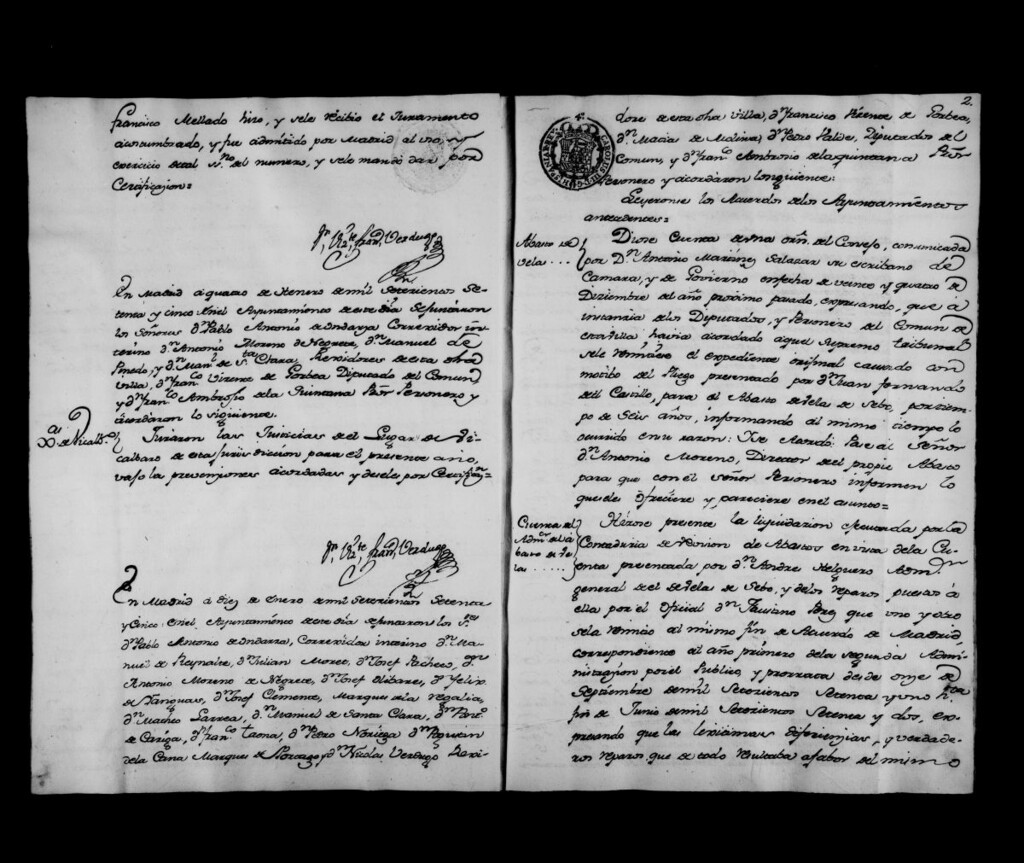 Francisco Mellado hizo, y sele recibio el Juramento
acostumbrado, y fue admitido por Madrid al uso, y
exercicio de tal S.no del numero, y sele mandó dar por
Certificazion=
Fran.co Verdugo
En Madrid a quatro de Henero de mil Setezientos Se-
tenta y cinco en el Ayuntamiento de este dia Se juntaron
los Señores D.n Pablo Antonio de Ondarza Correxidor in-
terino D.n Antonio Moreno de Negrete, D.n Manuel de
Pinedo, y D.n Man.l de S.ta Clara, Rexidores de esta dha
Villa, D.n Fran.co Vizente de Gorbea Diputado del Comun
y D.n Fran.co Ambrosio de la Quintana Pñor Personero y
acordaron lo siguiente.
de Vicalb.o
Juraron las Justicias del Lugar de Vi-
calbaro de esta Jurisdiccion para el presente año,
vajo las prevenziones acordadas y desele por Certificaz.n=
Fran.co Verdugo
En Madrid a diez de Enero de mil Setezientos Setenta
y Cinco: en el Ayuntamiento de este dia se juntaron los S.res
D.n Pablo Antonio de Ondarza, Correxidor interino D.n Ma-
nuel de Reynalte, D.n Julian Moret, D.n Josef Pacheco, D.n
Antonio Moreno de Negrete, D.n Josef Olibares, D.n Felix
de Yanguas, D.n Josef Clemente, Marques de la Regalia,
D.n Matheo Larrea, D.n Manuel de Santa Clara, D.n
de Cariga, D.n Fran.co Taona, D.n Pedro Noriega D.n
de la Cana Marques de y D.n Nicolas Verdugo Rexi-
2.
dores de esta dha Villa, D.n Francisco Vizente de Gorbea,
D.n Macia de Molina, D.n Pedro Diputados del
Comun, y D.n Fran.co Ambrosio de la Quintana Pñor
Personero y acordaron lo siguiente:
Leyeronse los Acuerdos de los Ayuntamientos
antecedentes=
Abasto de
vela....
Diose Cuenta de una orn. del Consejo, comunicada
por D.n Antonio Martinez Salazar su escribano de
Camara, y de Govierno en fecha de veinte y quatro de
Diziembre del año proximo pasado, expresando, que à
instancia de los Diputados, y Personero del Comun de
esta Villa havia acordado aquel Supremo tribunal
sele remitiese el expediente original causado con
motibo del Pliego presentado por D.n Juan Fernando
del Castillo, para el Abasto de Vela de Sebo, por tiem-
po de Seis años, informando al mismo tiempo lo
ocurrido en su razon: Y se Acordó Pase al Señor
D.n Antonio Moreno, Director del propio Abasto
para que con el señor Personero informen lo
que seles ofreciere y pareciere en el asunto=
Cuenta del
Adm.or del A-
basto de Ve-
las.....
Hizose presente la liquidazion executada por la
Contaduria de Provision de Abastos en vista de la Cu-
enta presentada por D.n Andres Helguero Adm.or
general de el de Vela de Sebo, y de los reparos puestos à
ella por el Oficial D.n Faustino Perez que uno y otro
sela remitió al mismo fin de Acuerdo de Madrid,
correspondiente al año primero de la segunda Admi-
nistrazion por el Publico, y prorrata desde onze de
Septiembre de mil Setezientos Setenta y uno h.ta
fin de Junio de mil Setezientos Setenta y dos, ex-
presando que las lexitimas diferenzias, y verdade-
ros reparos que de todo resultaba a fabor del mismo